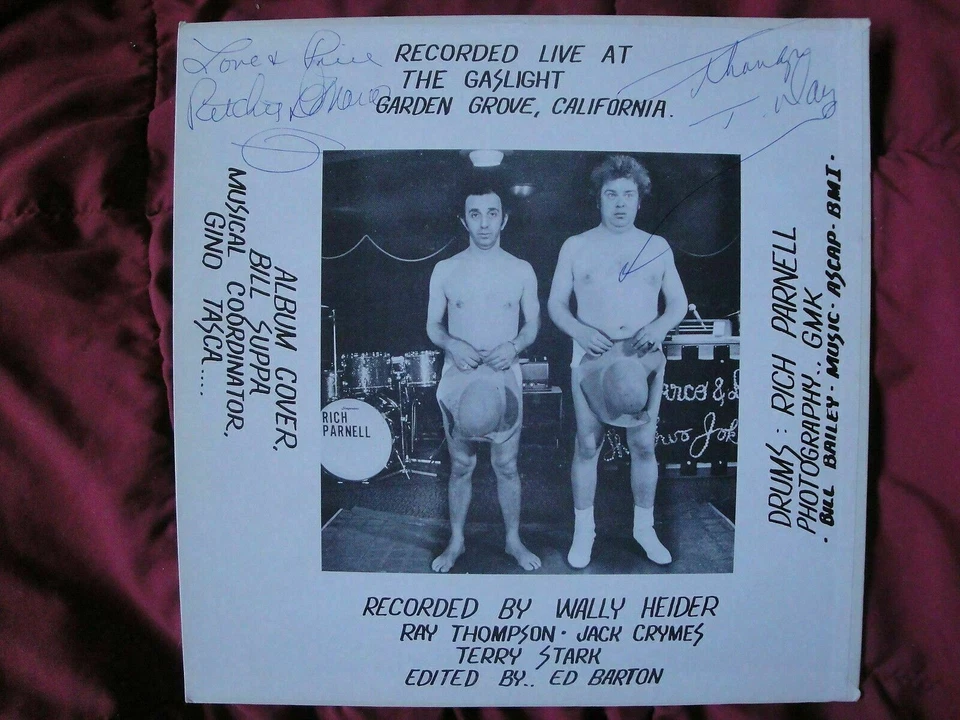 Love &
RECORDED LIVE AT
THE GASLIGHT
GARDEN GROVE, CALIFORNIA.
ALBUM COVER,
BILL SUPPA
MUSICAL COORDINATOR,
GINO TASCA....
RICH
PARNELL
DRUMS : RICH PARNELL
PHOTOGRAPHY.. GMK
· BILL BAILEY · MUSIC · ASCAP · BMI ·
RECORDED BY WALLY HEIDER
RAY THOMPSON · JACK CRYMES
TERRY STARK
EDITED BY.. ED BARTON